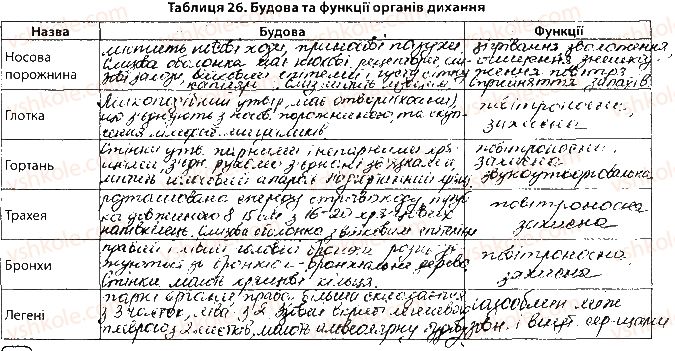 Таблиця 26. Будова та функції органів дихання
Назва Будова Функції
Носова порожнина
містить носові ходи, приносові пазухи.
Слизова оболонка має нюхові рецептори,
війковий епітелій і густу сітку
капілярів
зігрівання зволоження
очищення знешкодження повітря
сприйняття запахів
Глотка
Лійкоподібний утвір, має отвори (хоани),
що з'єднують з носов. порожниною, та скупчення
повітроносна,
захисна
Гортань
Стінки утв. парними і непарними хрящами
з'єдн. рухомо з'єднані зв'язками,
містить голосовий апарат. Надгортанний хрящ
повітроносна
захисна
звукоутворювальна
Трахея
розташована спереду стравоходу, трубка
довжиною 8 15 см з 16-20 хрящових
півкілець. Слизова оболонка з війковим епітелієм
повітроносна
захисна
Бронхи
правий і лівий головні бронхи розгалужуються
до бронхіол бронхіальне дерево.
Стінки мають хрящові кільця.
повітроносна
захисна
Легені
парні органи, права більша складається
з 3 часток, ліва з 2. Зовні вкриті легеневою
плеврою з 2 листків, мають альвеолярну будову
газообмін між
зовн. і внутр. сер-щами